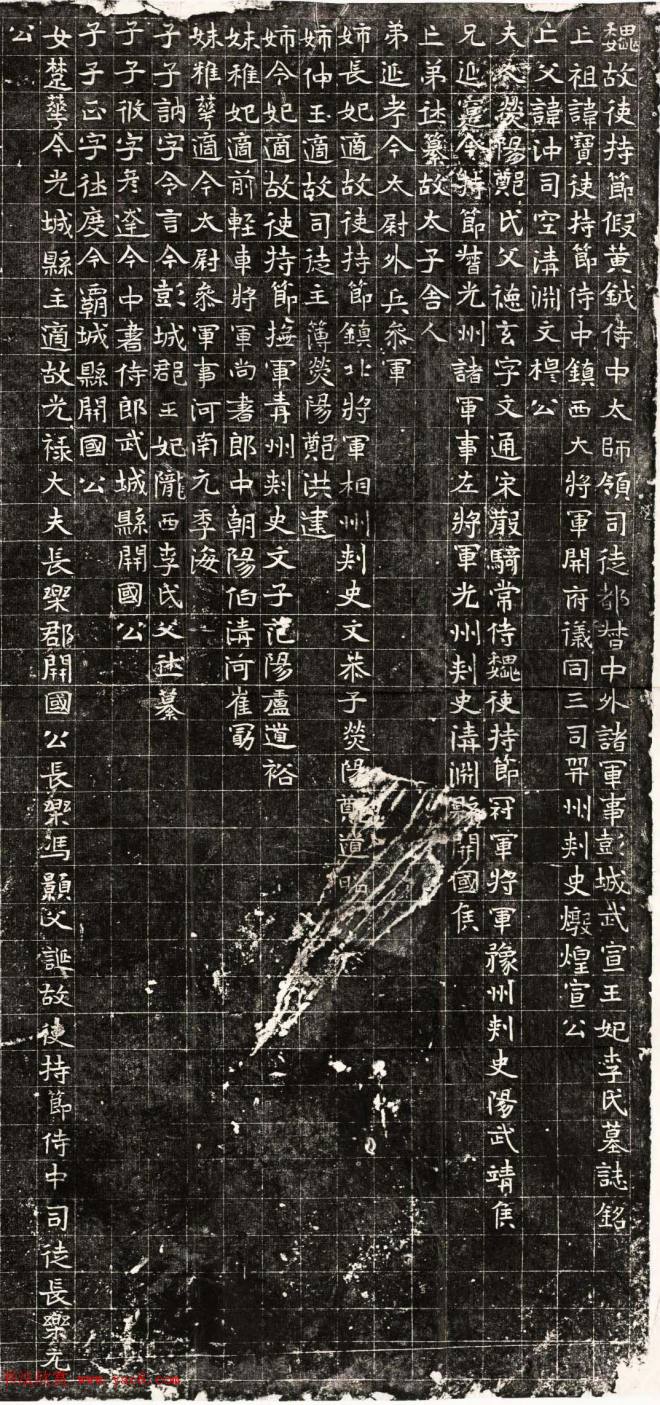 魏故使持節假黃鉞侍中太師領司徒都督中外諸軍事彭城武宣王妃李氏墓誌銘
亡祖諱寶使持節侍中鎮西大將軍開府儀同三司并州刾史燉煌宣公
亡父諱沖司空清淵文穆公
夫人滎陽鄭氏父德玄字文通宋散騎常侍魏使持節冠軍將軍豫州刾史陽武靖侯
兄延寔今持節督光州諸軍事左將軍光州刾史清淵縣開國侯
亡弟休纂故太子舍人
弟延孝今太尉外兵參軍
姉長妃適故使持節鎮北將軍相州刾史文恭子滎陽鄭道昭
姉仲玉適故司徒主簿滎陽鄭洪建
姉令妃適故使持節撫軍青州刾史文子范陽盧道裕
妹稚妃適前輕車將軍尚書郎中朝陽伯清河崔勗
妹稚華適今太尉參軍事河南元季海
子子訥字令言今彭城郡王妃隴西李氏父休纂
子子攸字彥達今中書侍郎武城縣開國公
子子正字休度今霸城縣開國公
女楚華今光城縣主適故光祿大夫長樂郡開國公長樂馮顥父誕故使持節侍中司徒長樂元
公
书法欣赏 www.yac8.com